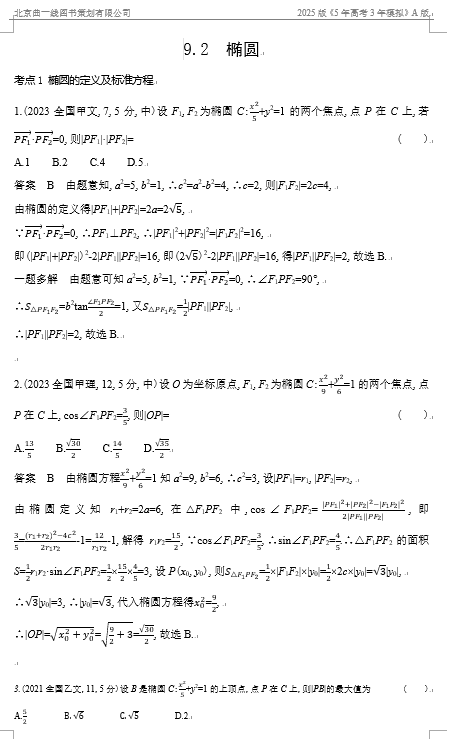 北京曲一线图书策划有限公司 2025版《5年高考3年模拟》A版
9.2 椭圆
考点1 椭圆的定义及标准方程
1.(2023全国甲文,7,5分,中)设F₁,F₂为椭圆C:x²/5+y²=1的两个焦点,点P在C上,若
PF₁→·PF₂→=0,则|PF₁|·|PF₂|= ( )
A.1 B.2 C.4 D.5
答案 B 由题意知,a²=5,b²=1,∴c²=a²-b²=4,∴c=2,则|F₁F₂|=2c=4,
由椭圆的定义得|PF₁|+|PF₂|=2a=2√5,
∵PF₁→·PF₂→=0,∴PF₁⊥PF₂,∴|PF₁|²+|PF₂|²=|F₁F₂|²=16,
即(|PF₁|+|PF₂|)²-2|PF₁||PF₂|=16,即(2√5)²-2|PF₁||PF₂|=16,得|PF₁||PF₂|=2,故选B.
一题多解 由题意可知a²=5,b²=1,∵PF₁→·PF₂→=0,∴∠F₁PF₂=90°,
∴S△PF₁F₂=b²tan∠F₁PF₂/2=1,又S△PF₁F₂=1/2|PF₁||PF₂|,
∴|PF₁||PF₂|=2,故选B.
2.(2023全国甲理,12,5分,中)设O为坐标原点,F₁,F₂为椭圆C:x²/9+y²/6=1的两个焦点,点
P在C上,cos∠F₁PF₂=3/5,则|OP|= ( )
A.13/5 B.√30/2 C.14/5 D.√35/2
答案 B 由椭圆方程x²/9+y²/6=1知a²=9,b²=6,∴c²=3,设|PF₁|=r₁,|PF₂|=r₂,
由椭圆定义知r₁+r₂=2a=6,在△F₁PF₂中,cos∠F₁PF₂=(|PF₁|²+|PF₂|²-|F₁F₂|²)/(2|PF₁||PF₂|),即
3/5=((r₁+r₂)²-4c²)/(2r₁r₂)-1=12/(r₁r₂)-1,解得r₁r₂=15/2,∵cos∠F₁PF₂=3/5,∴sin∠F₁PF₂=4/5∴△F₁PF₂的面积
S=1/2r₁r₂·sin∠F₁PF₂=1/2×15/2×4/5=3,设P(x₀,y₀),则S△F₁PF₂=1/2×|F₁F₂|×|y₀|=1/2×2c×|y₀|=√3|y₀|,
∴√3|y₀|=3,∴|y₀|=√3,代入椭圆方程得x₀²=9/2,
∴|OP|=√(x₀²+y₀²)=√(9/2+3)=√30/2,故选B.
3.(2021全国乙文,11,5分)设B是椭圆C:x²/5+y²=1的上顶点,点P在C上,则|PB|的最大值为 ( )
A.5/2 B.√6 C.√5 D.2